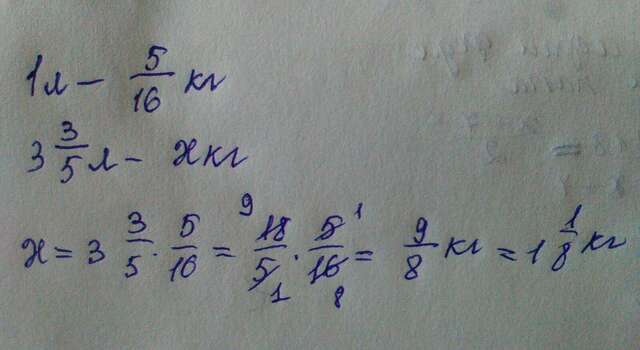 1л – 5/16 кг
3 3/5 л – x кг
x = 3 3/5 · 5/16 = 18/5 · 5/16 = 9/8 кг = 1 1/8 кг